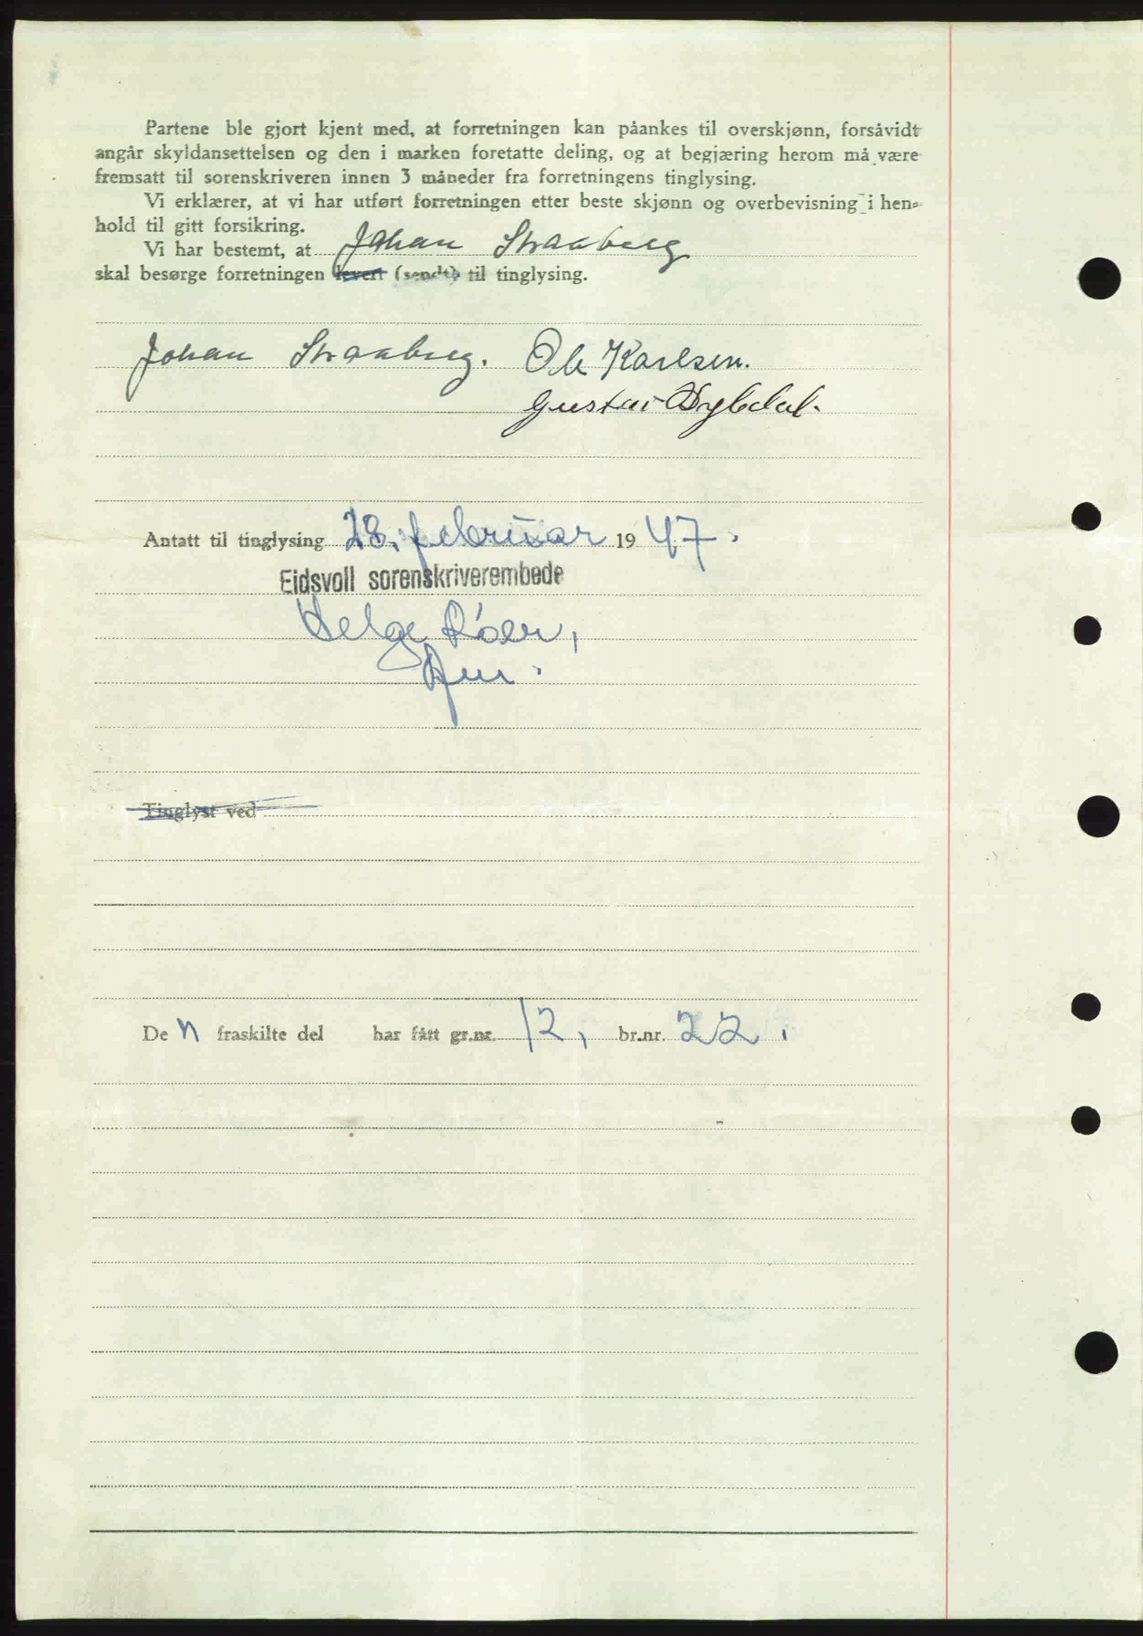 Partene ble gjort kjent med, at forretningen kan påankes til overskjønn, forsåvidt
angår skyldansettelsen og den i marken foretatte deling, og at begjæring herom må være
fremsatt til sorenskriveren innen 3 måneder fra forretningens tinglysing.
Vi erklærer, at vi har utført forretningen etter beste skjønn og overbevisning i hen-
hold til gitt forsikring.
Vi har bestemt, at Johan Straaberg
skal besørge forretningen levert (sendt) til tinglysing.
Johan Straaberg. Ole Karlsen.
Gustav
Antatt til tinglysing 28. februar 1947.
Eidsvoll sorenskriverembede
Helge Röer,
Tinglyst ved
De n fraskilte del har fått gr.nr. 12, br.nr. 22.